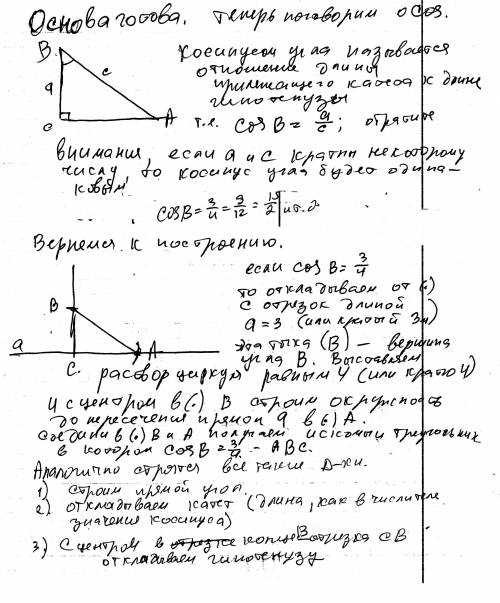 Основа готова. Теперь поговорим о cos.
B
c
a
c
A
Косинусом угла называется
отношение длины
прилежащего катета к длине
гипотенузы
т.е. cos B = a/c; обратите
внимания, если a и c кратны некоторому
числу, то косинус угла будет одина-
ковым
cos B = 3/4 = 9/12 = и т.д
Вернемся к построению.
если cos B = 3/4
то откладываем от (.)
C отрезок длиной
a = 3 (или кратый 3м)
эта точка (B) – вершина
угла B. Выставляем
B
a
A
C.
раствор циркуля равным 4 (или кратно 4)
и с центром в (.) B строим окружность
до пересечения с прямой a в (.) A.
Соединив (.) B и A получаем искомый треугольник
в котором cos B = 3/4 – ABC.
Аналогично строятся все такие Δ-ки.
1) строим прямой угол.
2) откладываем катет (длина, как в числителе
значения косинуса)
3) С центром в конце B отрезка CB
откладываем гипотенузу